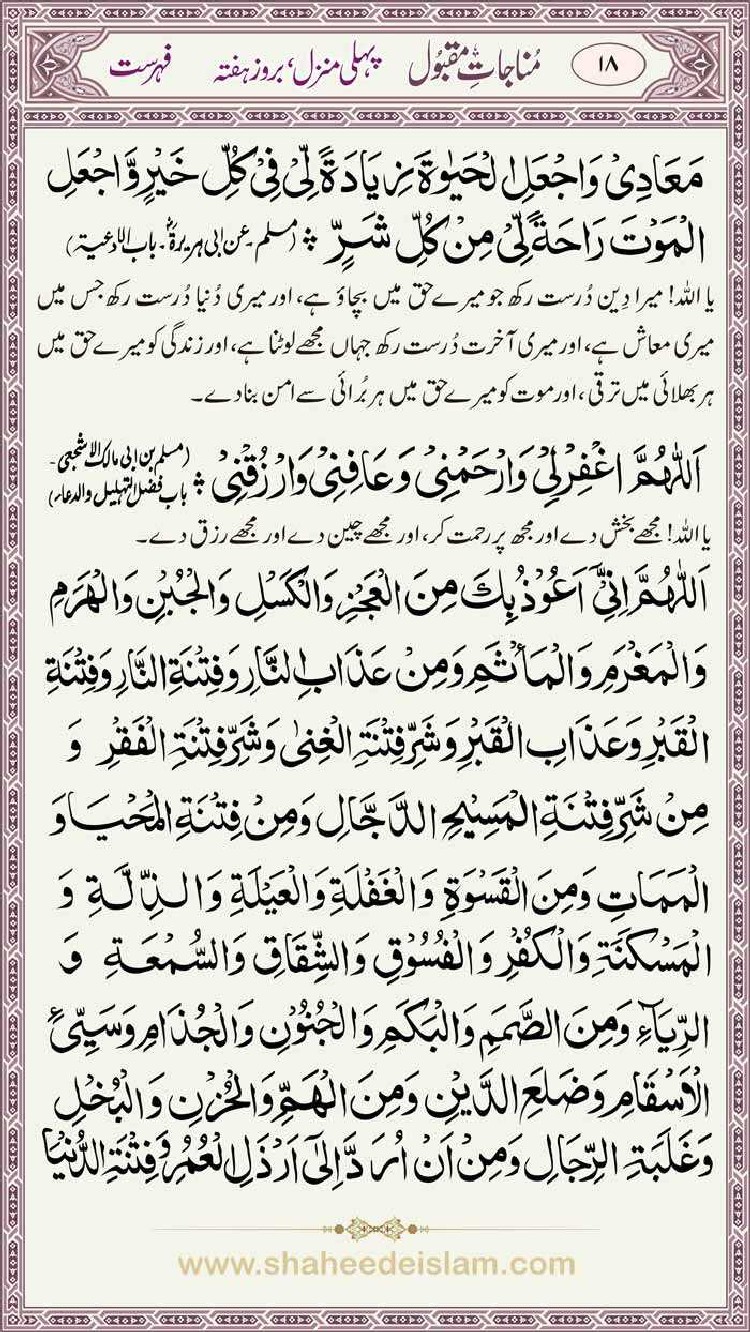 ١٨ مُناجاتِ مقبُول پہلی منزل، بروز ہفتہ فہرست
مَعَادِیْ وَاجْعَلِ الْحَیٰوةَ زِیَادَةً لِّیْ فِیْ كُلِّ خَیْرٍ وَّاجْعَلِ
الْمَوْتَ رَاحَةً لِّیْ مِنْ كُلِّ شَرٍّ ؞ (مسلم۔ عن ابی ہریرۃؓ۔ باب الادعیۃ)
یا اللہ! میرا دِین دُرست رکھ جو میرے حق میں بچاؤ ہے، اور میری دُنیا دُرست رکھ جس میں
میری معاش ہے، اور میری آخرت دُرست رکھ جہاں مجھے لوٹنا ہے، اور زندگی کو میرے حق میں
ہر بھلائی میں ترقی، اور موت کو میرے حق میں ہر بُرائی سے امن بنادے۔
اَللّٰهُمَّ اغْفِرْلِیْ وَارْحَمْنِیْ وَعَافِنِیْ وَارْزُقْنِیْ ؞ (مسلم بن ابی مالک الاشجعی۔
باب فضل التہلیل والدعاء)
یا اللہ! مجھے بخش دے اور مجھ پر رحمت کر، اور مجھے چین دے اور مجھے رزق دے۔
اَللّٰهُمَّ اِنِّیْٓ اَعُوْذُ بِكَ مِنَ الْعَجْزِ وَالْكَسَلِ وَالْجُبْنِ وَالْهَرَمِ
وَالْمَغْرَمِ وَالْمَأْثَمِ وَمِنْ عَذَابِ النَّارِ وَفِتْنَةِ النَّارِ وَفِتْنَةِ
الْقَبْرِ وَعَذَابِ الْقَبْرِ وَشَرِّ فِتْنَةِ الْغِنٰی وَشَرِّ فِتْنَةِ الْفَقْرِ وَ
مِنْ شَرِّ فِتْنَةِ الْمَسِیْحِ الدَّجَّالِ وَمِنْ فِتْنَةِ الْمَحْیَا وَ
الْمَمَاتِ وَمِنَ الْقَسْوَةِ وَالْغَفْلَةِ وَالْعَیْلَةِ وَالذِّلَّةِ وَ
الْمَسْكَنَةِ وَالْكُفْرِ وَالْفُسُوْقِ وَالشِّقَاقِ وَالسُّمْعَةِ وَ
الرِّیَآءِ وَمِنَ الصَّمَمِ وَالْبَكَمِ وَالْجُنُوْنِ وَالْجُذَامِ وَسَیِّیءِ
الْاَسْقَامِ وَضَلَعِ الدَّیْنِ وَمِنَ الْهَمِّ وَالْحُزْنِ وَالْبُخْلِ
وَغَلَبَةِ الرِّجَالِ وَمِنْ اَنْ اُرَدَّ اِلٰٓی اَرْذَلِ الْعُمُرِ وَفِتْنَةِ الدُّنْیَا
www.shaheedeislam.com